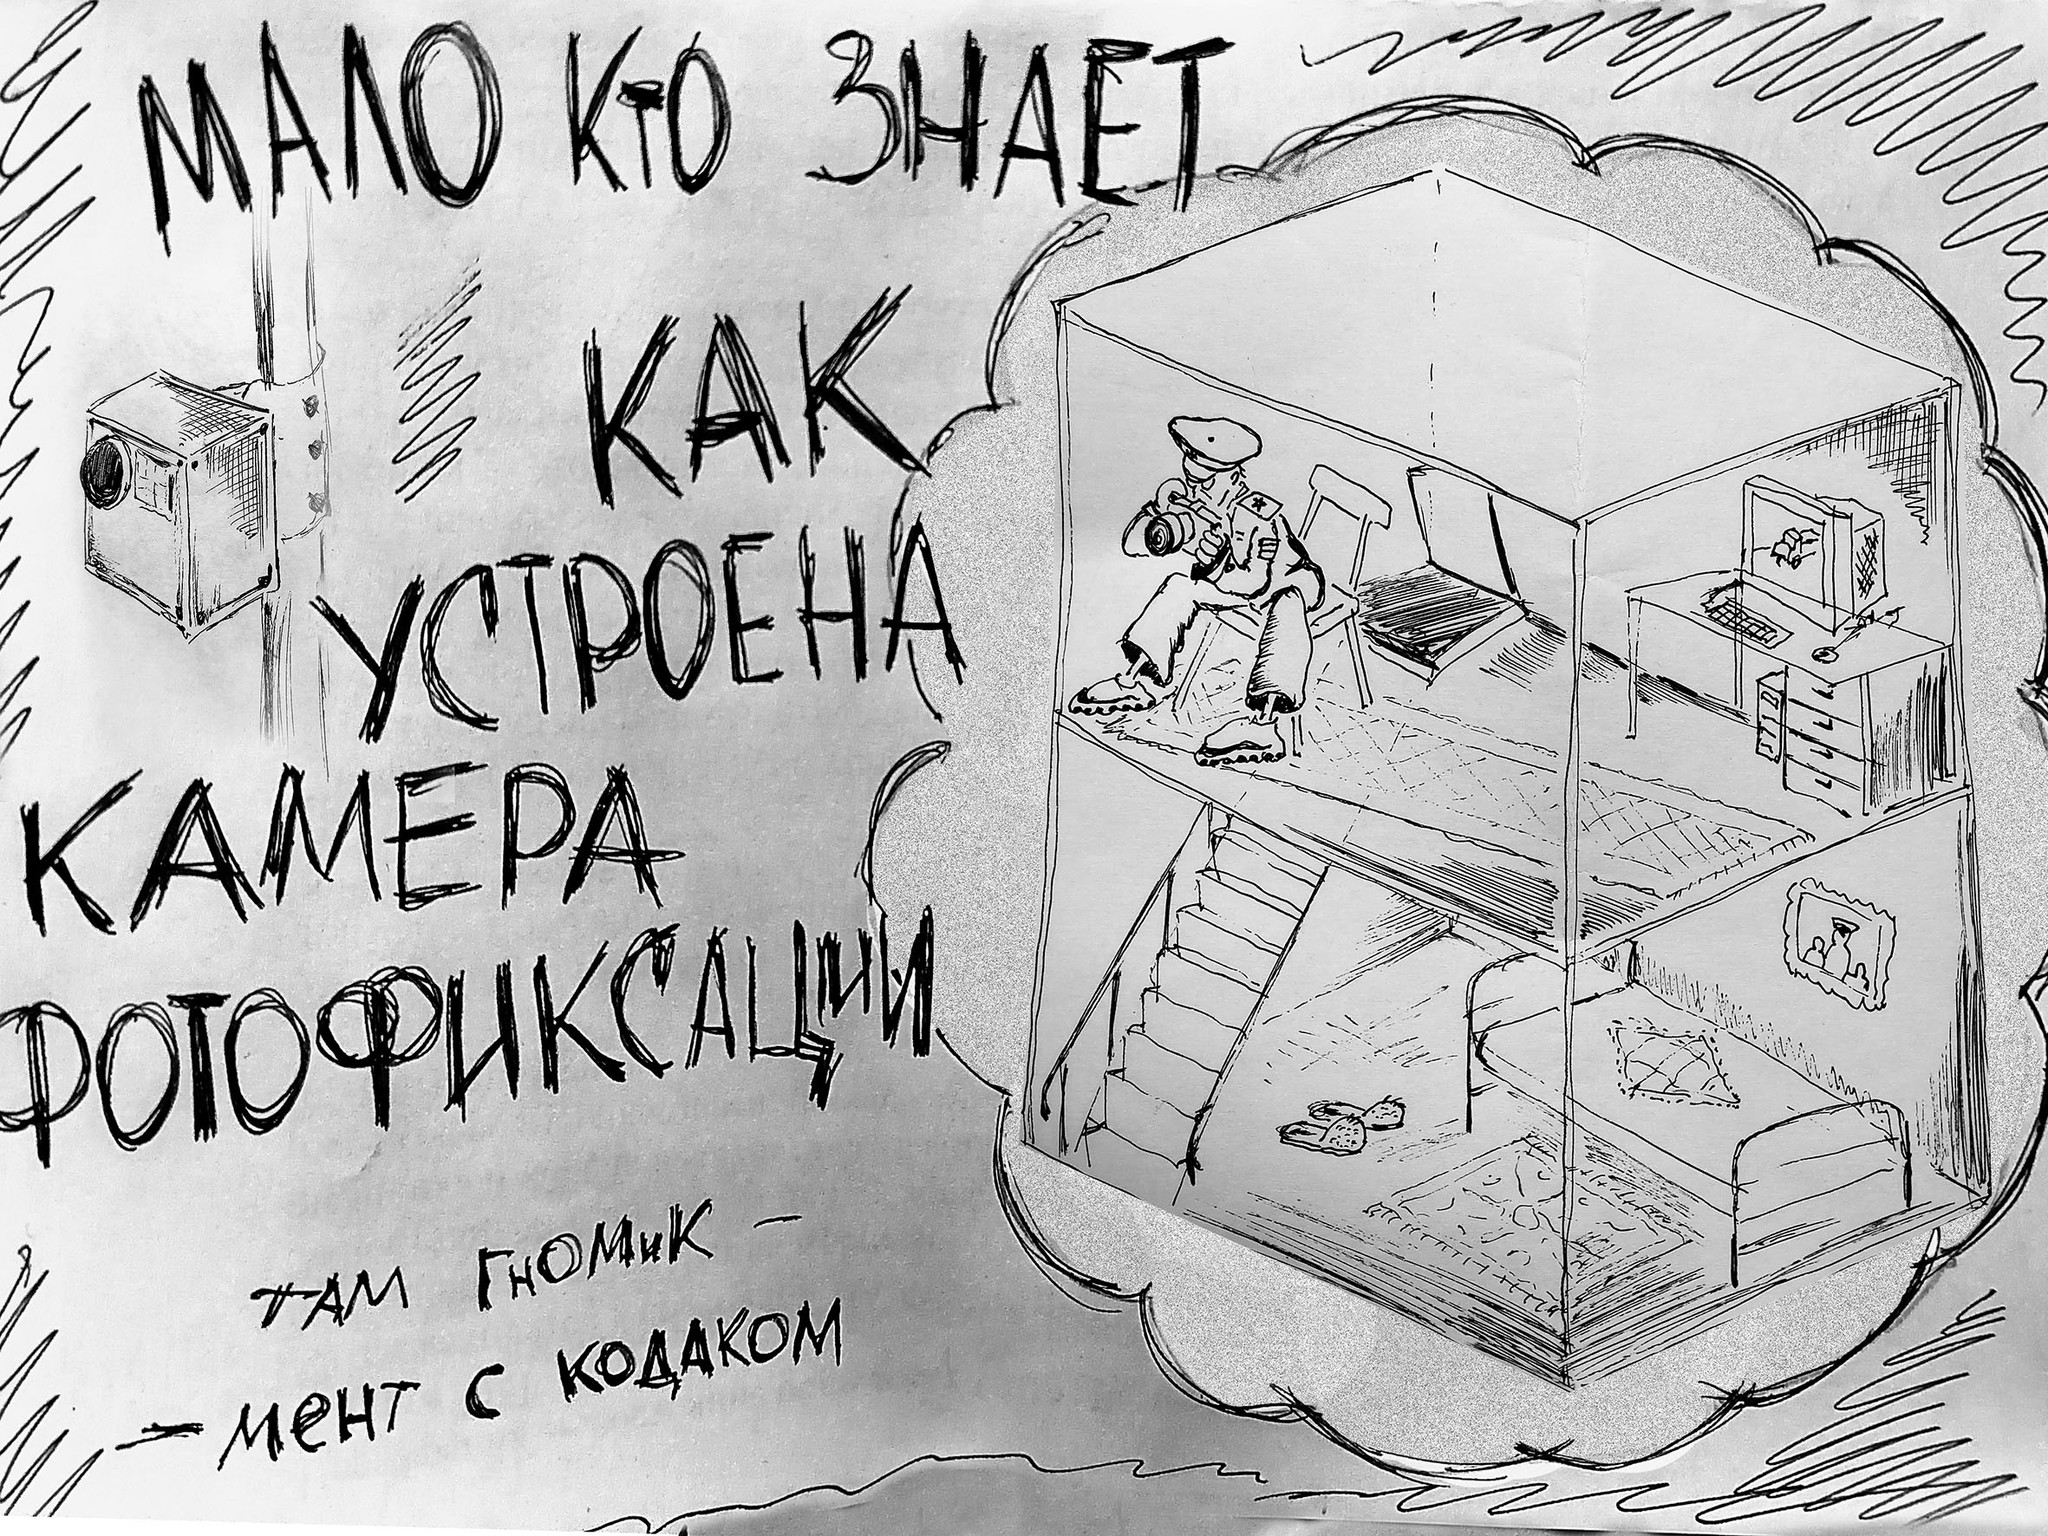 МАЛО КТО ЗНАЕТ
КАК
УСТРОЕНА
КАМЕРА
ФОТОФИКСАЦИИ
ТАМ ГНОМИК –
– МЕНТ С КОДАКОМ